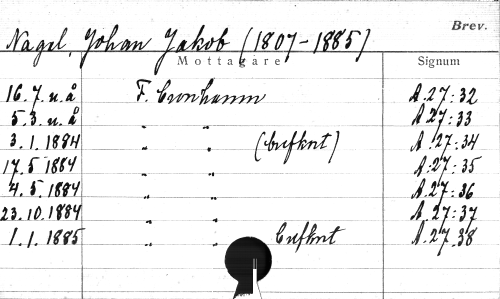 Brev.
Nagel, Johan Jakob (1807-1885)
Mottagare Signum
16.7. u.å F. Cronhamn A.27:32
5.3. u.å A 27:33
3.1.1884 " " (brefkrt) A.27:34
17.5 1884 " " A.27:35
4.5.1884 " " A.27:36
23.10.1884 " " A.27:37
1.1.1885 " " brefkrt A.27.38